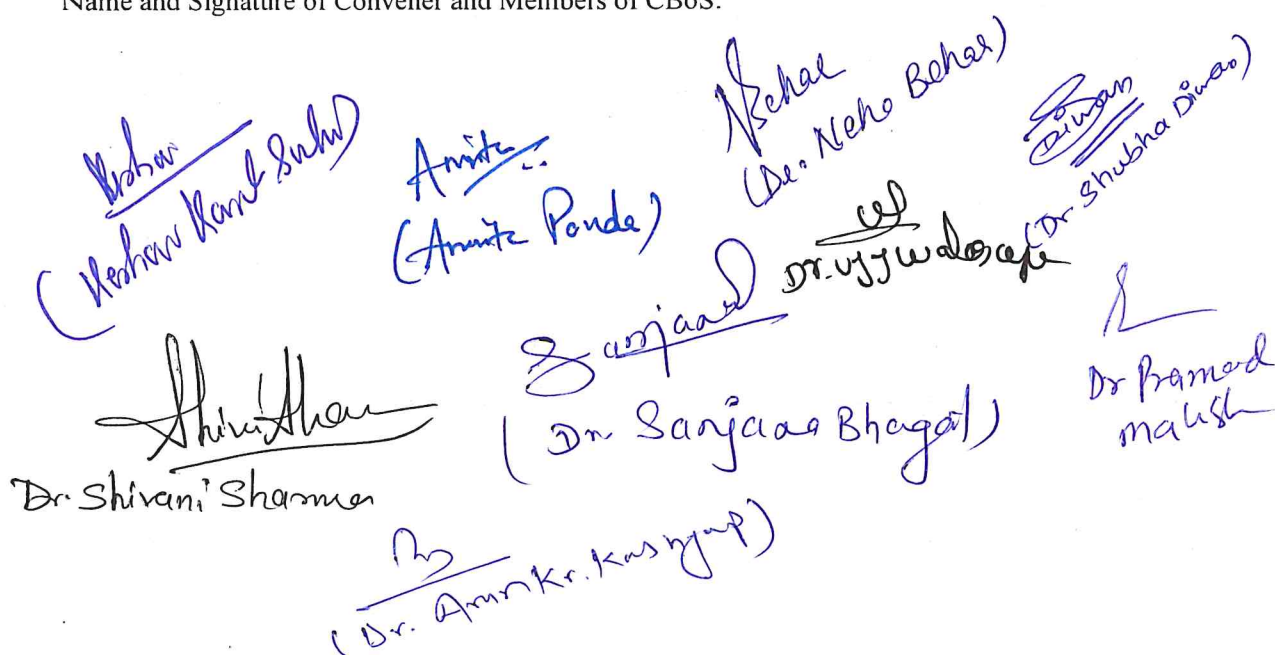 Name and Signature of Convener and Members of CBoS:
Keshav
(Keshav Kant Sahu)
Amrita
(Amrita Panda)
NBehar
(Dr. Neha Behar)
Diwan
(Dr Shubha Diwan)
Dr. Ujjwala
Sanjana
(Dr. Sanjana Bhagat)
Dr Pramod
Mahish
Dr. Shivani Sharma
(Dr. Arun Kr. Kashyap)